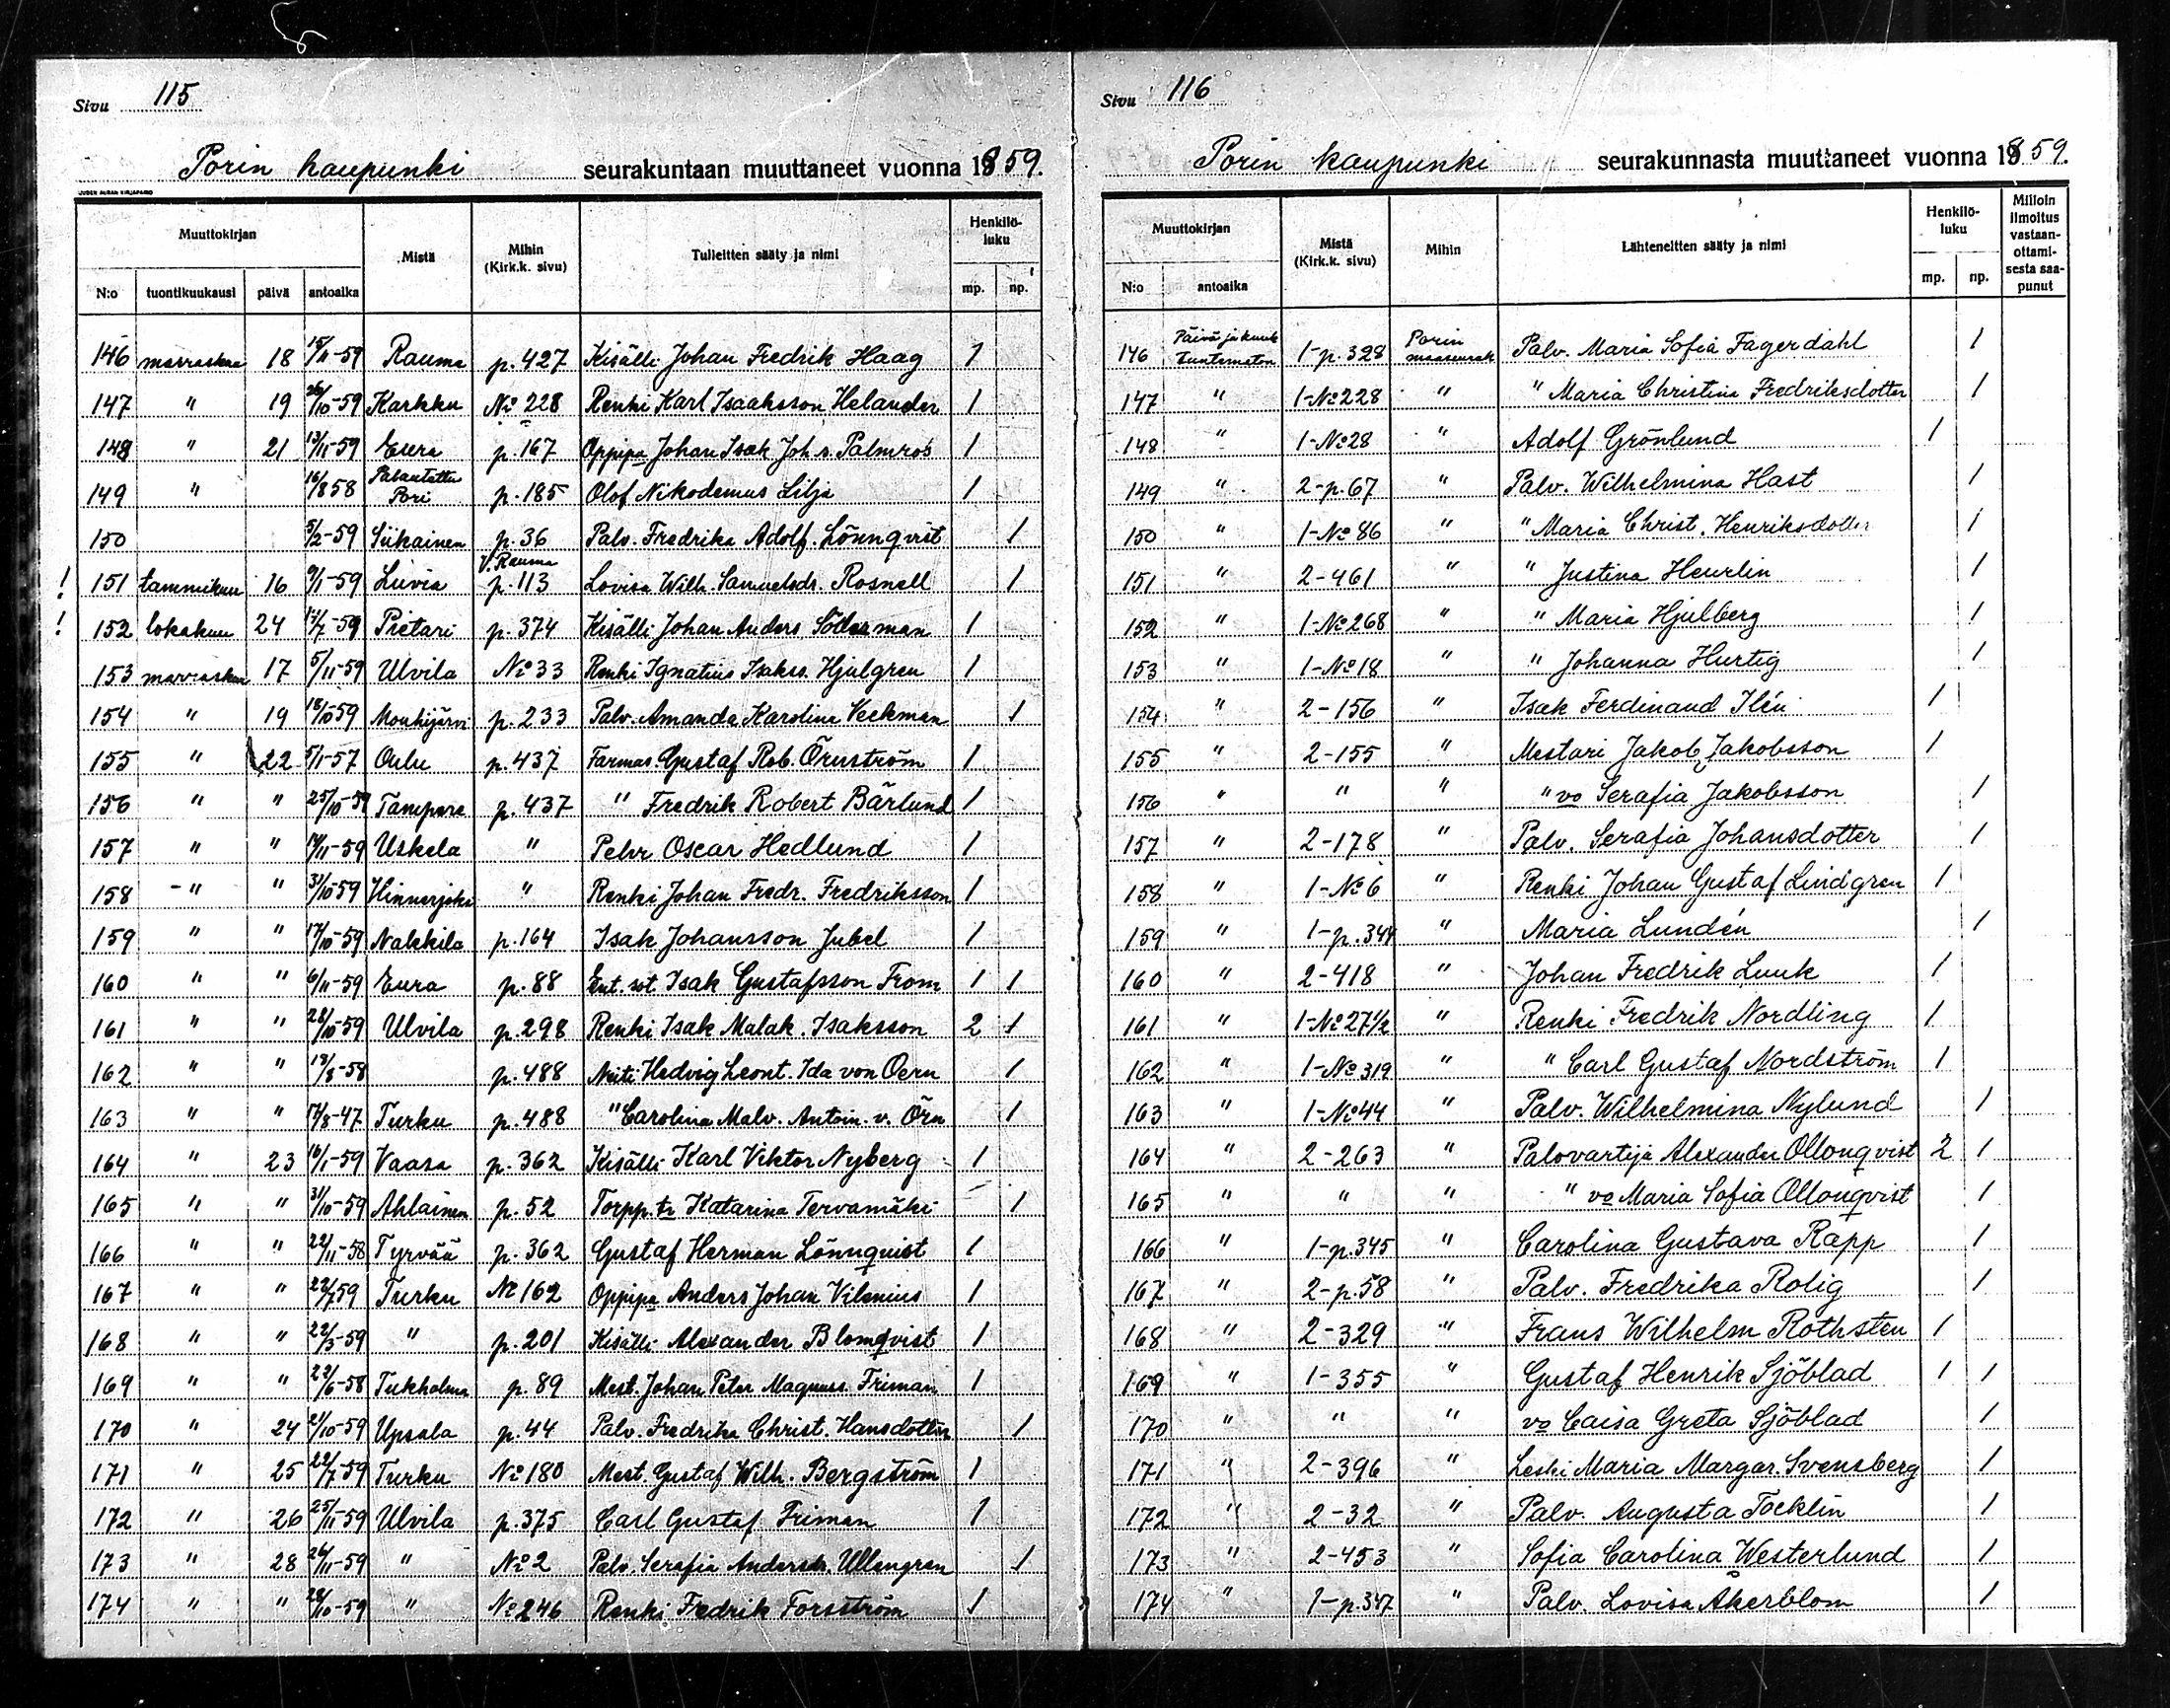 Sivu 115
Porin kaupunki seurakuntaan muuttaneet vuonna 1859.
Muuttokirjan
N:o tuontikuukausi päivä antoaika Mistä Mihin (Kirk.k. sivu) Tulleitten sääty ja nimi Henkilö-luku mp. np.
146 marraskuu 18 15/11-59 Rauma p. 427 Kisälli Johan Fredrik Haag 1
147 " 19 26/10-59 Karkku No 228 Renki Karl Isaaksson Helander 1
148 " 21 13/11-59 Eura p. 167 Oppipa Johan Isak Joh.s. Palmros 1
149 " 16/8 58 Palautettu Pori p. 185 Olof Nikodemus Lilja 1
150 5/2-59 Siikainen p. 36 Palv. Fredrika Adolf. Lönnqvist 1
! 151 tammikuu 16 9/1-59 Luvia V. Rauma p. 113 Lovisa Wilh. Samuelsdr. Rosnell 1
! 152 lokakuu 24 14/7-59 Pietari p. 374 Kisälli Johan Anders Söderman 1
153 marraskuu 17 5/11-59 Ulvila No 33 Renki Ignatius Isakss. Hjulgren 1
154 " 19 18/10 59 Mouhijärvi p. 233 Palv. Amanda Karolina Veckman 1
155 " 22 5/1-57 Oulu p. 437 Farmas. Gustaf Rob. Örnström 1
156 " " 25/10-59 Tampere p. 437 " Fredrik Robert Bärlund 1
157 " " 14/11-59 Uskela " Pehr Oscar Hedlund 1
158 - " " 31/10 59 Hinnerjoki " Renki Johan Fredr. Fredriksson 1
159 " " 17/10-59 Nakkila p. 164 Isak Johansson Jubel 1
160 " " 6/11-59 Eura p. 88 Ent. sot. Isak Gustafsson From 1 1
161 " " 28/10-59 Ulvila p. 298 Renki Isak Malak. Isaksson 2 1
162 " " 18/8-58 p. 488 Neiti Hedvig Leont. Ida von Oern 1
163 " " 17/8-47 Turku p. 488 " Carolina Malv. Antoin. v. Örn 1
164 " 23 16/1-59 Vaasa p. 362 Kisälli Karl Viktor Nyberg 1
165 " " 31/10-59 Ahlainen p. 52 Torpp. tr Katarina Tervamäki 1
166 " " 22/11-58 Tyrvää p. 362 Gustaf Herman Lönnquist 1
167 " " 22/7 59 Turku No 162 Oppipa Anders Johan Vilenius 1
168 " " 22/3-59 " p. 201 Kisälli Alexander Blomqvist 1
169 " " 22/6-58 Tukholma p. 89 Mest. Johan Peter Magnuss. Friman 1
170 " 24 21/10-59 Upsala p. 44 Palv. Fredrika Christ. Hansdotter 1
171 " 25 22/7-59 Turku No 180 Mest. Gustaf Wilh. Bergström 1
172 " 26 25/11-59 Ulvila p. 375 Carl Gustaf Friman 1
173 " 28 26/11-59 " No 2 Palv. Serafia Andersdr. Ullengren 1
174 " " 28/10-59 " No 246 Renki Fredrik Forsström 1
Sivu 116
Porin kaupunki seurakunnasta muuttaneet vuonna 1859.
Muuttokirjan
N:o antoaika Mistä (Kirk.k. sivu) Mihin Lähteneitten sääty ja nimi Henkilö-luku mp. np. Milloin ilmoitus vastaan-ottami-sesta saa-punut
146 Päivä ja kuuk tuntematon 1-p. 328 Porin maaseurak Palv. Maria Sofia Fagerdahl 1
147 " 1-No 228 " " Maria Christina Fredriksdotter 1
148 " 1-No 28 " Adolf Grönlund 1
149 " 2-p. 67 " Palv. Wilhelmina Hast 1
150 " 1-No 86 " " Maria Christ. Henriksdotter 1
151 " 2-461 " " Justina Heurlin 1
152 " 1-No 268 " " Maria Hjulberg 1
153 " 1-No 18 " " Johanna Hurtig 1
154 " 2-156 " Isak Ferdinand Ilén 1
155 " 2-155 " Mestari Jakob Jakobsson 1
156 " " " " vo Serafia Jakobsson 1
157 " 2-178 " Palv. Serafia Johansdotter 1
158 " 1-No 6 " Renki Johan Gustaf Lindgren 1
159 " 1-p. 344 " Maria Lundén 1
160 " 2-418 " Johan Fredrik Luuk 1
161 " 1-No 27 1/2 " Renki Fredrik Nordling 1
162 " 1-No 319 " " Carl Gustaf Nordström 1
163 " 1-No 44 " Palv. Wilhelmina Nylund 1
164 " 2-263 " Palovartija Alexander Ollonqvist 2 1
165 " " " " vo Maria Sofia Ollonqvist 1
166 " 1-p. 345 " Carolina Gustava Rapp 1
167 " 2-p. 58 " Palv. Fredrika Rolig 1
168 " 2-329 " Frans Wilhelm Rothsten 1
169 " 1-355 " Gustaf Henrik Sjöblad 1 1
170 " " " vo Caisa Greta Sjöblad 1
171 " 2-396 " Leski Maria Margar. Svensberg 1
172 " 2-32 " Palv. Augusta Tocklin 1
173 " 2-453 " Sofia Carolina Westerlund 1
174 " 1-p. 347 " Palv. Lovisa Akerblom 1